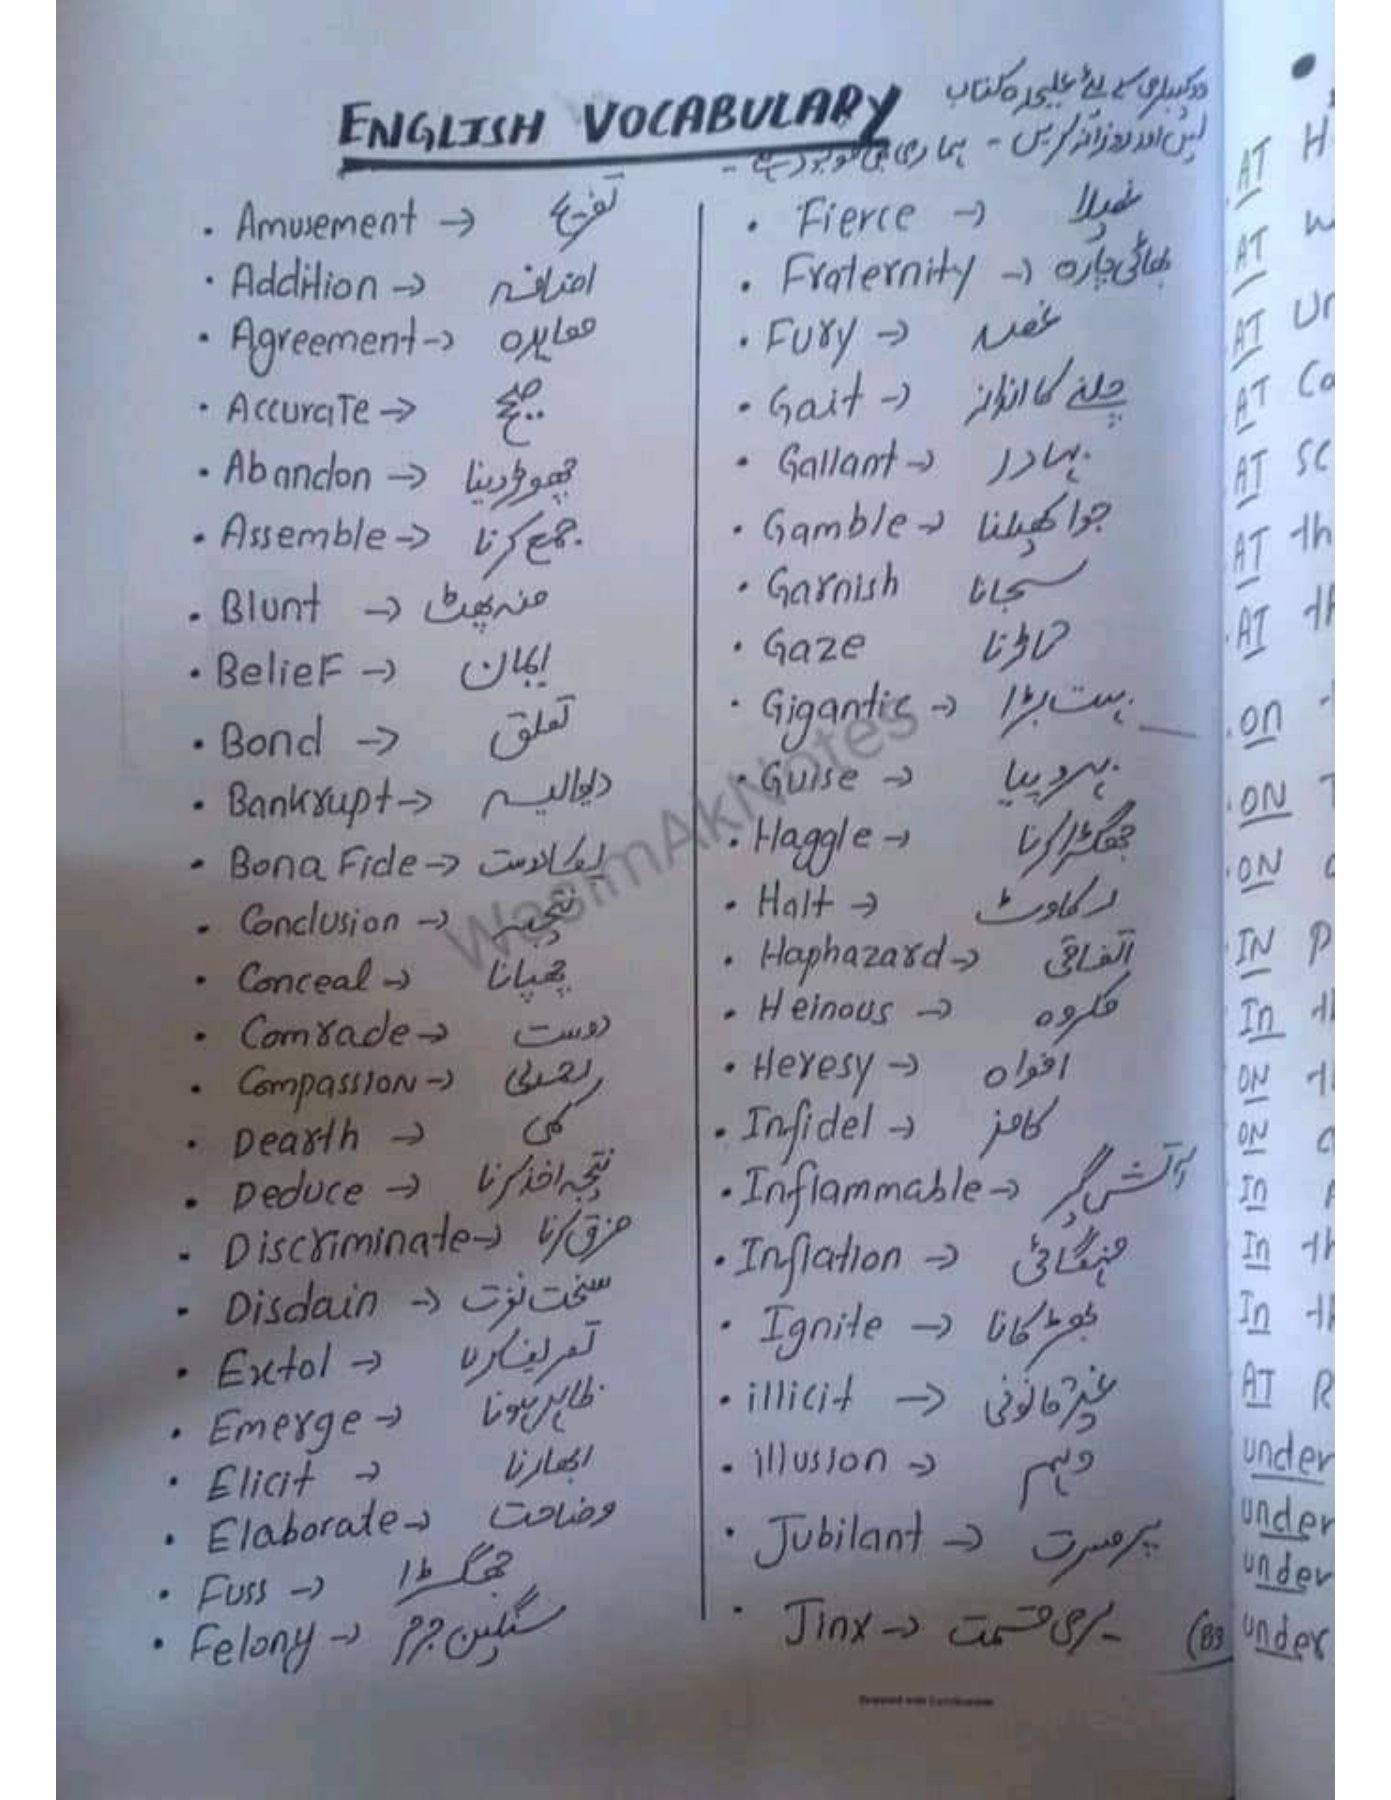 ENGLISH VOCABULARY
لیں اور روزانہ کریں - ہماری بھی موجود ہے -
• Amusement → تفریح
• Addition → اضافہ
• Agreement → معاہدہ
• Accurate → صحیح
• Abandon → چھوڑ دینا
• Assemble → جمع کرنا
• Blunt → منہ پھٹ
• Belief → ایمان
• Bond → تعلق
• Bankrupt → دیوالیہ
• Bona Fide →
• Conclusion → نتیجہ
• Conceal → چھپانا
• Comrade → دوست
• Compassion → رحمدلی
• Dearth → کمی
• Deduce → نتیجہ اخذ کرنا
• Discriminate → فرق کرنا
• Disdain → سخت نفرت
• Extol → تعریف کرنا
• Emerge → ظاہر ہونا
• Elicit → ابھارنا
• Elaborate → وضاحت
• Fuss → جھگڑا
• Felony → سنگین جرم
• Fierce → غصیلا
• Fraternity → بھائی چارہ
• Fury → غصہ
• Gait → چلنے کا انداز
• Gallant → بہادر
• Gamble → جوا کھیلنا
• Garnish سجانا
• Gaze تاڑنا
• Gigantic → بہت بڑا
• Guise → بہروپیا
• Haggle → جھگڑا کرنا
• Halt → رکاوٹ
• Haphazard → اتفاقی
• Heinous → مکروہ
• Heresy → افواہ
• Infidel → کافر
• Inflammable → آتش گیر
• Inflation → مہنگائی
• Ignite → بھڑکانا
• illicit → غیر قانونی
• illusion → وہم
• Jubilant → پر مسرت
• Jinx → بری قسمت
(B9
WasimAkNotes
AT H
AT W
AT Un
AT Co
AT SC
AT th
AT th
on
ON T
ON
IN P
In th
ON th
ON
In
In th
In th
AT R
under
under
under
under